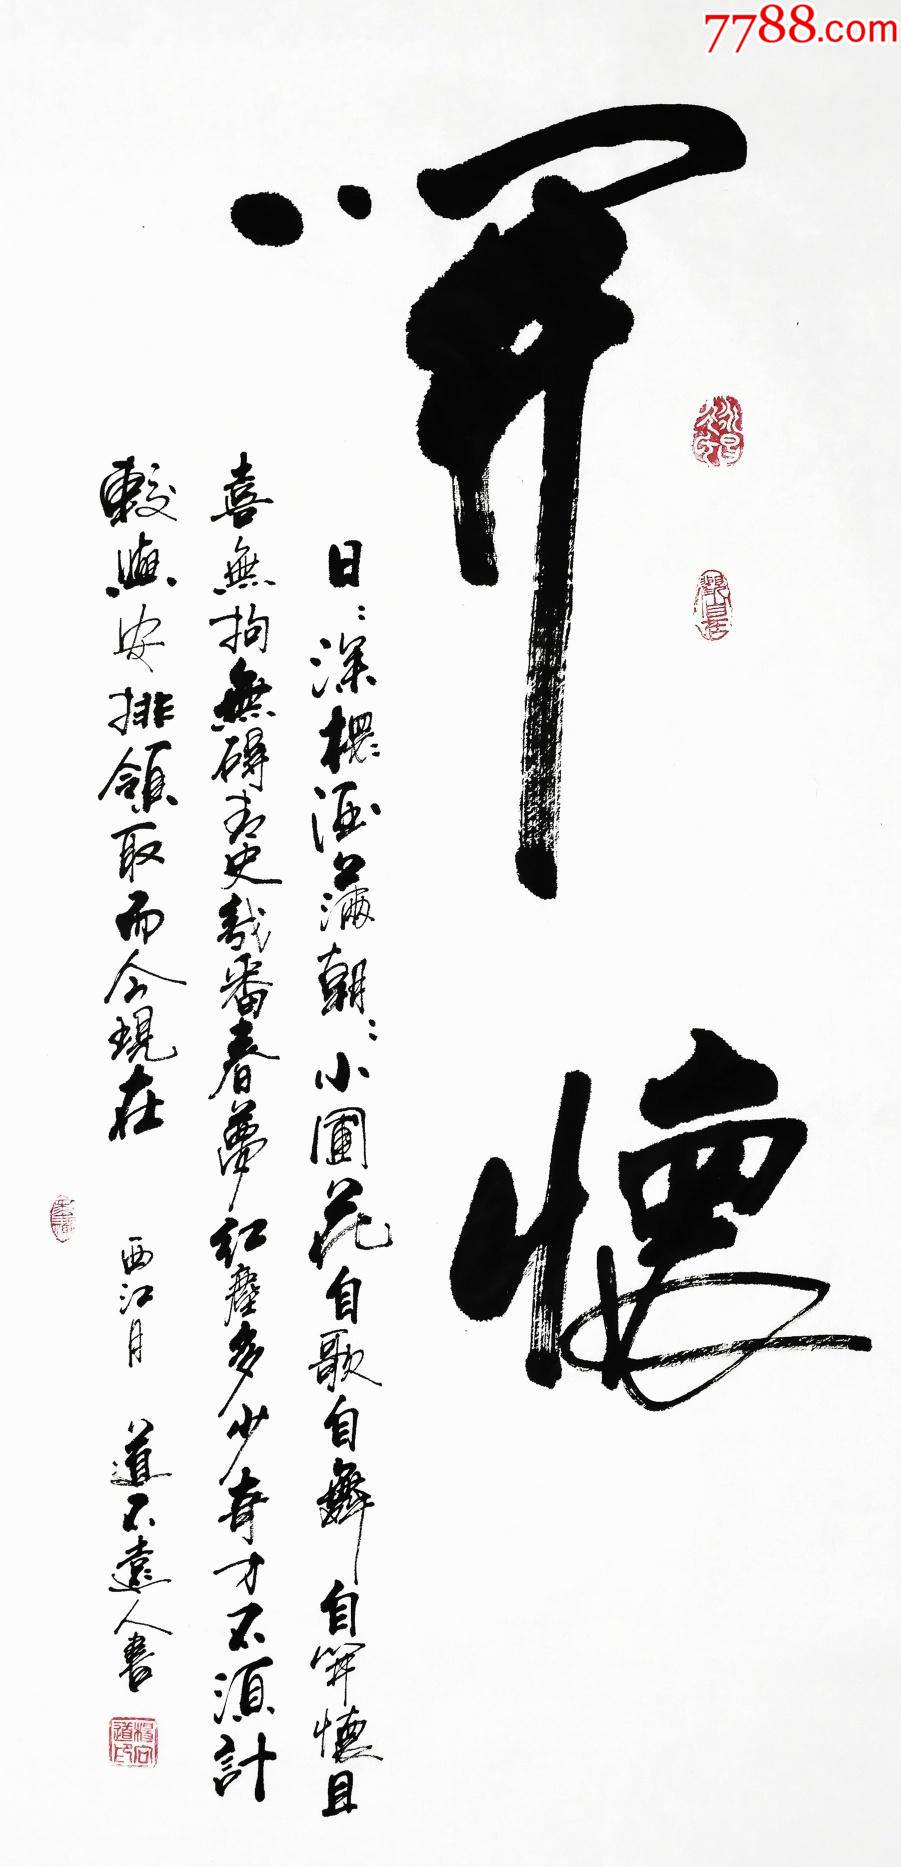 7788.com
開懷
日〻深杯酒滿朝〻小圃花自歌自舞自開懷且
喜無拘無礙青史幾番春夢紅塵多少奇才不須計
較與安排領取而今現在
西江月
道不遠人書